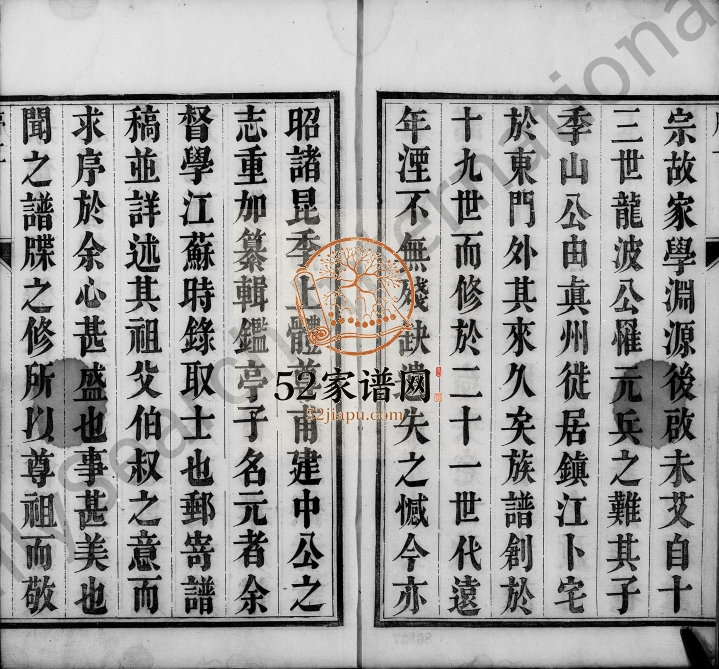 宗故家學淵源後啟未艾自十
三世龍波公罹元兵之難其子
季山公由眞州徙居鎮江卜宅
於東門外其來久矣族譜創於
十九世而修於二十一世代遠
年湮不無殘缺遺失之憾今亦
昭諸昆季上體尊甫建中公之
志重加纂輯鑑亭子名元者余
督學江蘇時錄取士也郵寄譜
稿並詳述其祖父伯叔之意而
求序於余心甚盛也事甚美也
聞之譜牒之修所以尊祖而敬
52家谱网
52jiapu.com